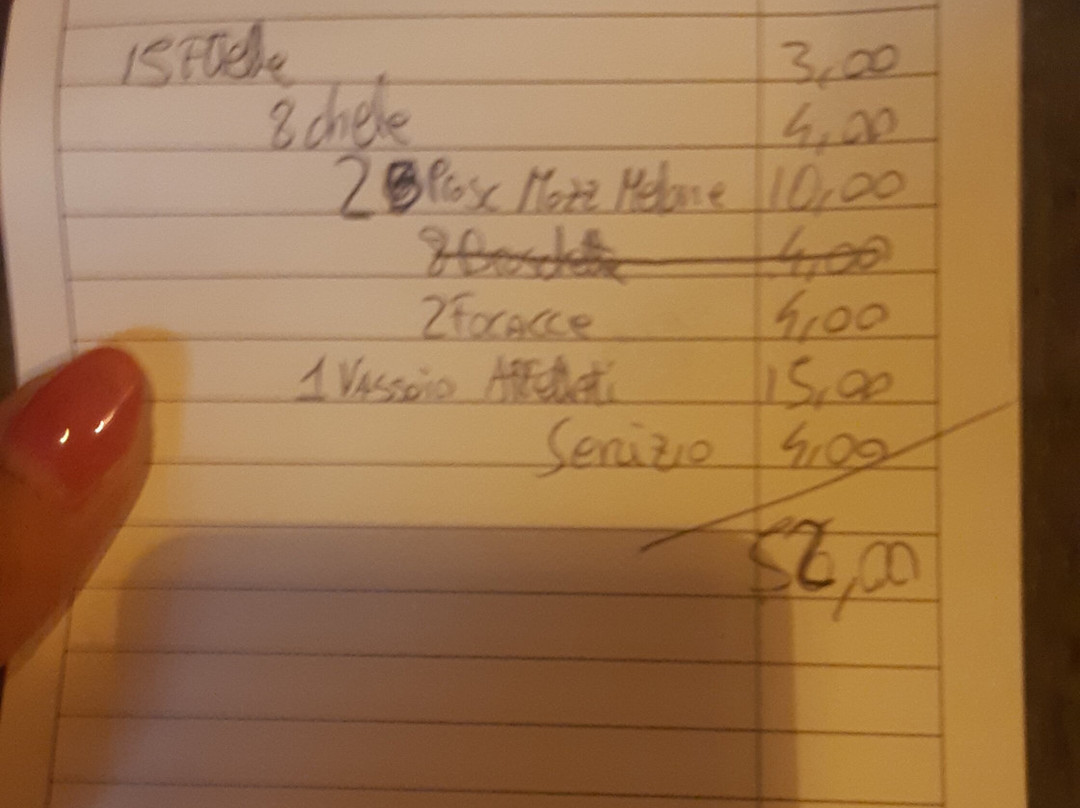 15 3,00
8 chele 4,00
2 Prosc Mozz Melone 10,00
8 4,00
2 Focacce 4,00
1 Vassoio Affettati 15,00
Servizio 4,00
52,00